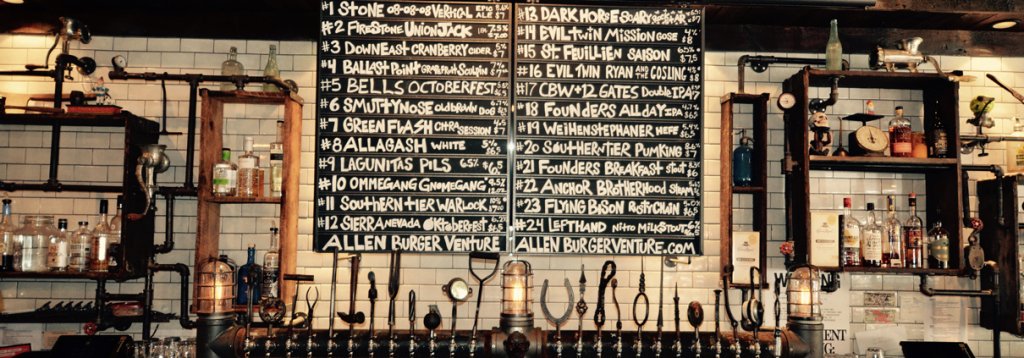 #1 STONE 08-08-08 VERTICAL EPIC ALE $7
#2 FIRESTONE UNION JACK IPA 7.5%
#3 DOWNEAST CRANBERRY CIDER 5%
#4 BALLAST POINT GRAPEFRUIT SCULPIN 7% $7
#5 BELLS OCTOBERFEST
#6 SMUTTYNOSE OLD BROWN DOG
#7 GREEN FLASH CITRA SESSION $7
#8 ALLAGASH WHITE 5%
#9 LAGUNITAS PILS 6.5%
#10 OMMEGANG GNOMEGANG
#11 SOUTHERN TIER WARLOCK 10%
#12 SIERRA NEVADA OKTOBERFEST
ALLEN BURGER VENTURE
#13 DARK HORSE SCARY
#14 EVIL TWIN MISSION GOSE 4% $8
#15 ST. FEUILLIEN SAISON 6.5%
#16 EVIL TWIN RYAN AND THE GOSLING
#17 CBW+12 GATES DOUBLE IPA
#18 FOUNDERS ALL DAY IPA 4.7%
#19 WEIHENSTEPHANER HEFE 5.4%
#20 SOUTHERN TIER PUMKING $7
#21 FOUNDERS BREAKFAST STOUT
#22 ANCHOR BROTHERHOOD STEAM
#23 FLYING BISON RUSTY CHAIN
#24 LEFT HAND NITRO MILK STOUT 6%
ALLEN BURGERVENTURE.COM